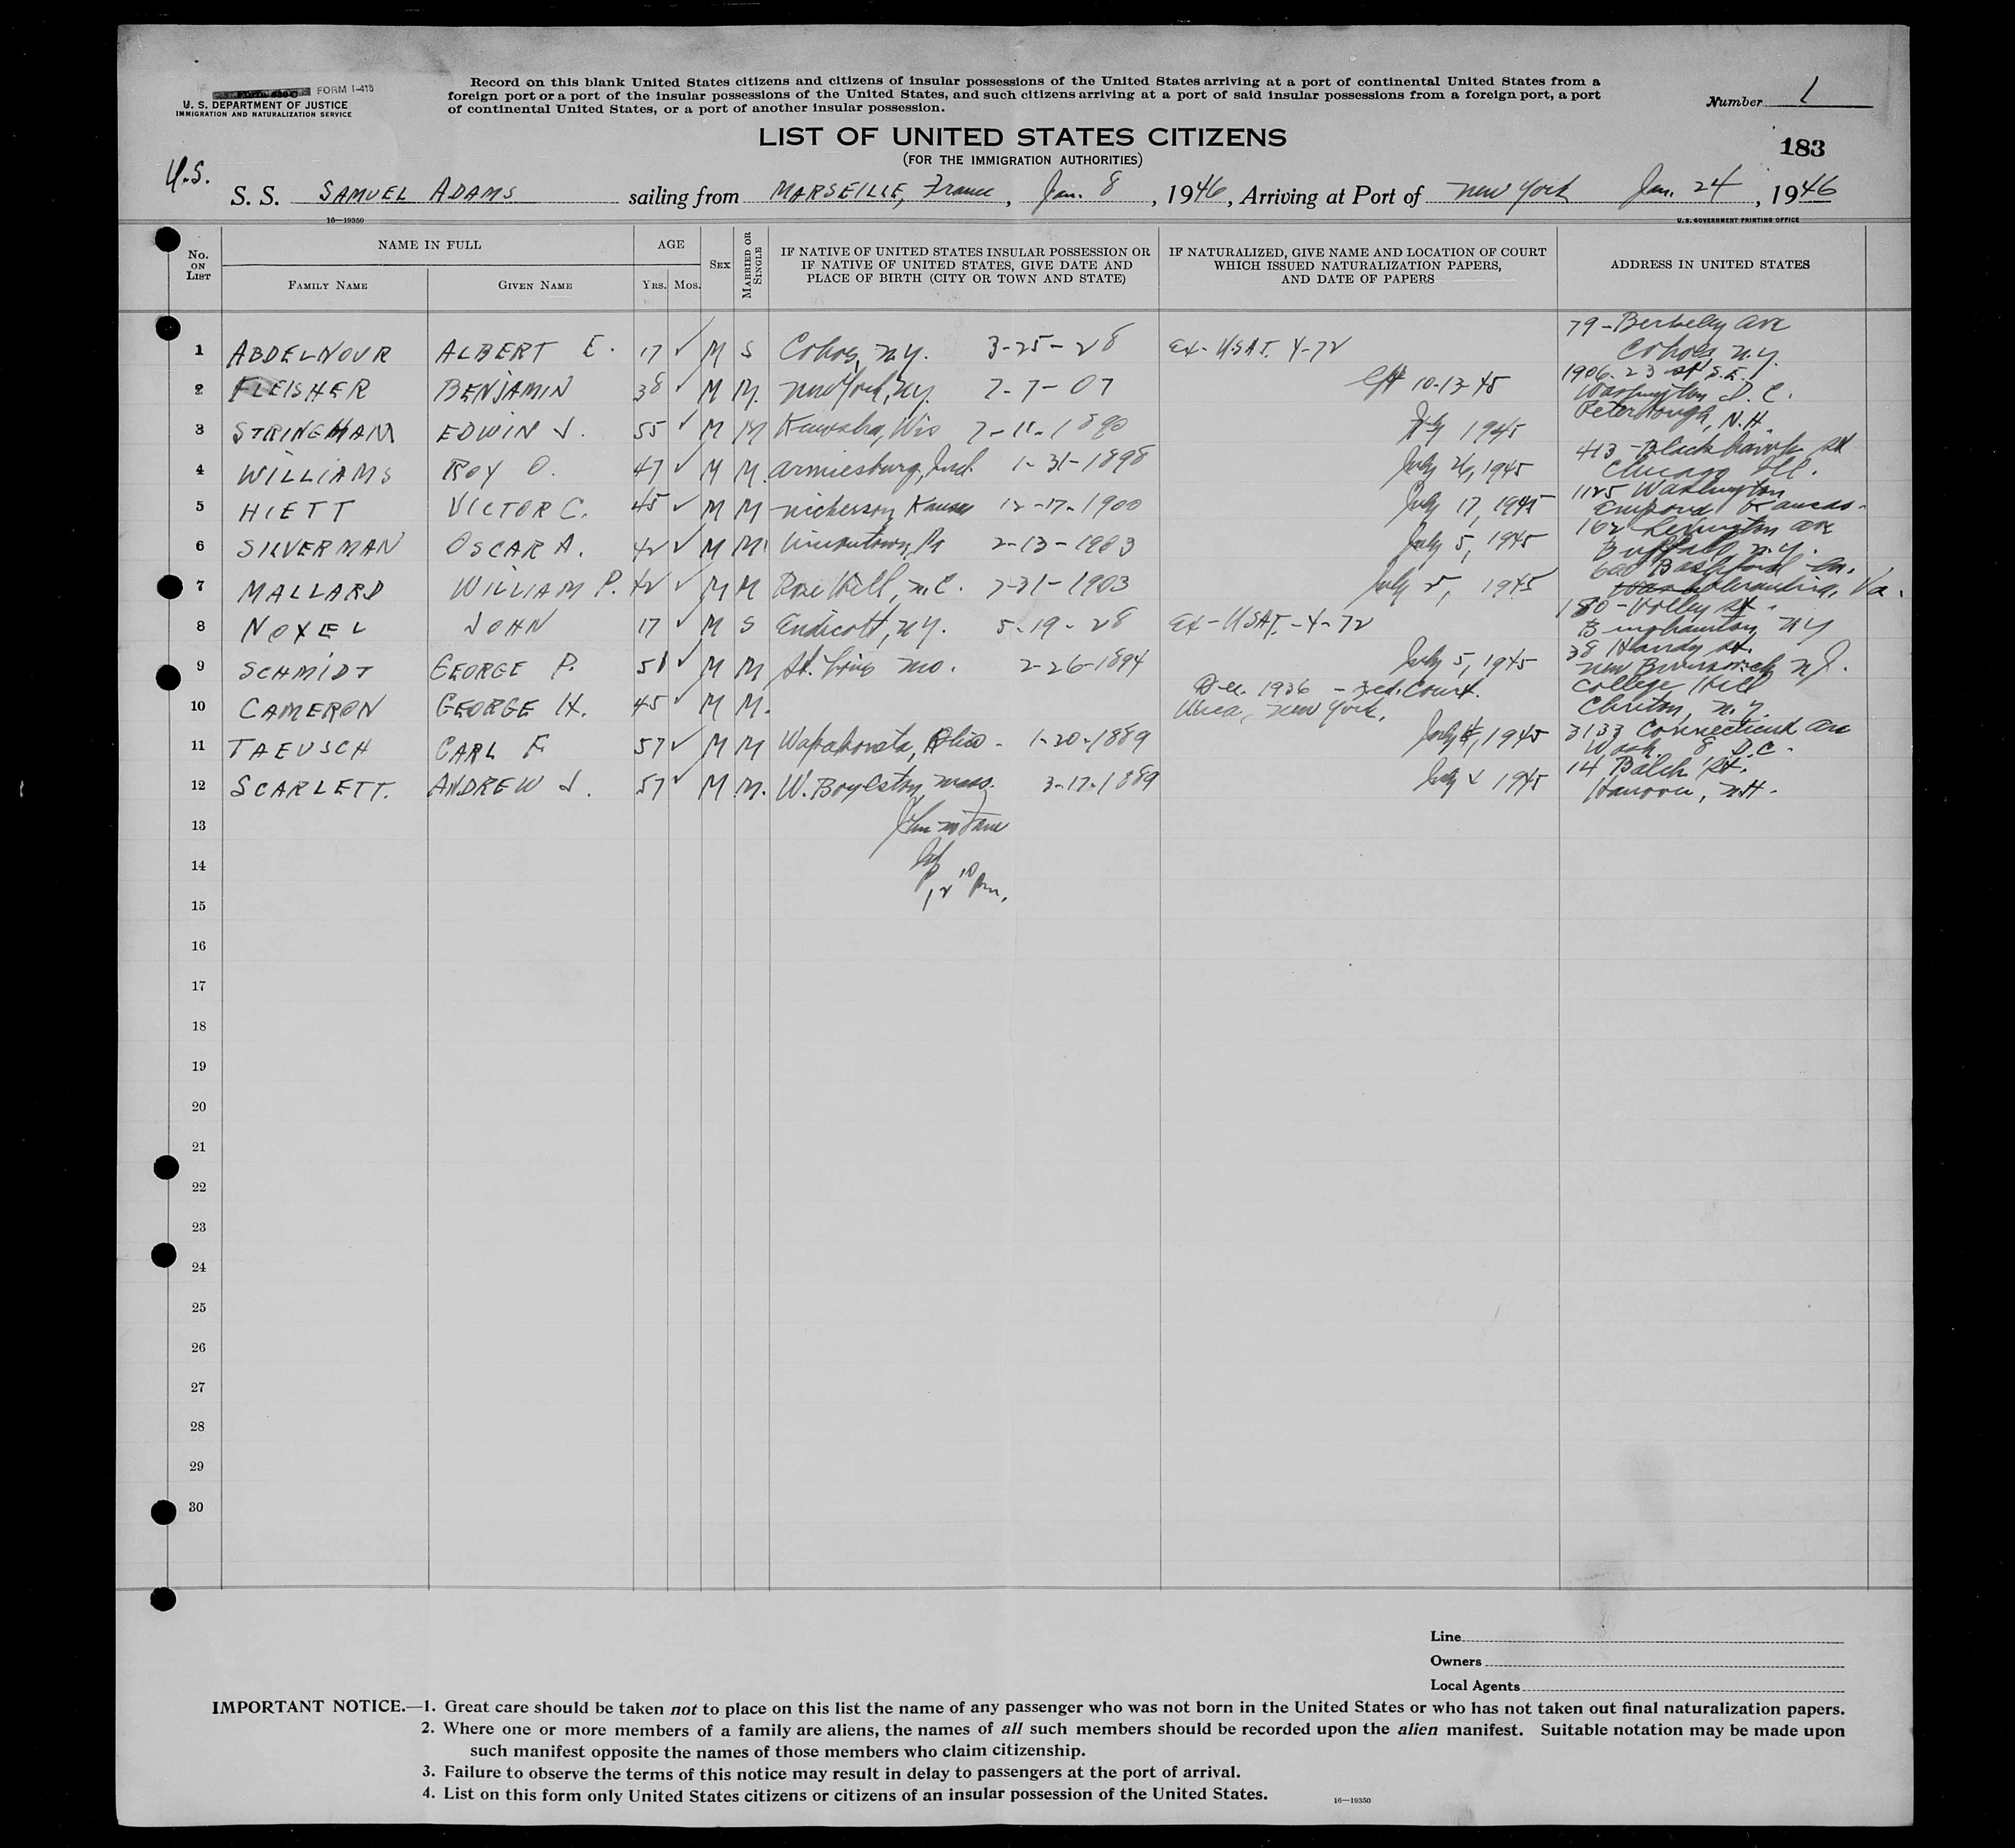 FORM I-415
U. S. DEPARTMENT OF JUSTICE
IMMIGRATION AND NATURALIZATION SERVICE
Record on this blank United States citizens and citizens of insular possessions of the United States arriving at a port of continental United States from a
foreign port or a port of the insular possessions of the United States, and such citizens arriving at a port of said insular possessions from a foreign port, a port
of continental United States, or a port of another insular possession.
Number 1
LIST OF UNITED STATES CITIZENS
(FOR THE IMMIGRATION AUTHORITIES)
183
U.S.
S. S. SAMUEL ADAMS sailing from MARSEILLE, France, Jan. 8, 1946, Arriving at Port of New York Jan. 24, 1946
16—19350 U. S. GOVERNMENT PRINTING OFFICE
No. ON LIST
NAME IN FULL
FAMILY NAME GIVEN NAME
AGE
YRS. MOS.
SEX
MARRIED OR SINGLE
IF NATIVE OF UNITED STATES INSULAR POSSESSION OR
IF NATIVE OF UNITED STATES, GIVE DATE AND
PLACE OF BIRTH (CITY OR TOWN AND STATE)
IF NATURALIZED, GIVE NAME AND LOCATION OF COURT
WHICH ISSUED NATURALIZATION PAPERS,
AND DATE OF PAPERS
ADDRESS IN UNITED STATES
1 ABDELNOUR ALBERT E. 17 ✓ M S Cohoes, N.Y. 3-25-28 Ex-USAT. Y-72 79 - Berkeley Ave
Cohoes, N.Y.
2 FLEISHER BENJAMIN 38 ✓ M M. New York, N.Y. 7-7-07 10-13-45 1906. 23 st S.E.
Washington D.C.
3 STRINGHAM EDWIN J. 55 ✓ M M Wis 7-11-1890 July 1945 Peterborough, N.H.
4 WILLIAMS ROY O. 47 ✓ M M. Armiesburg, Ind. 1-31-1898 July 26, 1945 413 - Blackhawk St
Chicago Ill.
5 HIETT VICTOR C. 45 ✓ M M Nickerson Kansas 12-17-1900 July 17, 1945 1125 Washington
Emporia Kansas.
6 SILVERMAN OSCAR A. 42 ✓ M M Uniontown, Pa 2-13-1903 July 5, 1945 162 Lexington Ave
Buffalo, N.Y.
7 MALLARD WILLIAM P. 42 ✓ M M Rose Hill, N.C. 7-31-1903 July 5, 1945 600 Bashford Ln.
Alexandria, Va.
8 NOXEL JOHN 17 ✓ M S Endicott, N.Y. 5-19-28 Ex-USAT.-Y-72 180 - Holley St.
Binghamton, NY
9 SCHMIDT GEORGE P. 51 ✓ M M St. Louis Mo. 2-26-1894 July 5, 1945 38 Handy St.
New Brunswick N.J.
10 CAMERON GEORGE H. 45 ✓ M M. Dec. 1936 - Fed. Court.
Utica, New York. College Hill
Clinton, N.Y.
11 TAEUSCH CARL F. 57 ✓ M M Wapakoneta, Ohio - 1-20-1889 July 1945 3133 Connecticut Ave
Wash. 8 D.C.
12 SCARLETT. ANDREW J. 57 ✓ M M. W. Boylston, Mass. 3-17-1889 July 1945 14 Balch St.
Hanover, N.H.
13
14
15
16
17
18
19
20
21
22
23
24
25
26
27
28
29
30
Line
Owners
Local Agents
IMPORTANT NOTICE.—1. Great care should be taken not to place on this list the name of any passenger who was not born in the United States or who has not taken out final naturalization papers.
2. Where one or more members of a family are aliens, the names of all such members should be recorded upon the alien manifest. Suitable notation may be made upon
such manifest opposite the names of those members who claim citizenship.
3. Failure to observe the terms of this notice may result in delay to passengers at the port of arrival.
4. List on this form only United States citizens or citizens of an insular possession of the United States.
16—19350